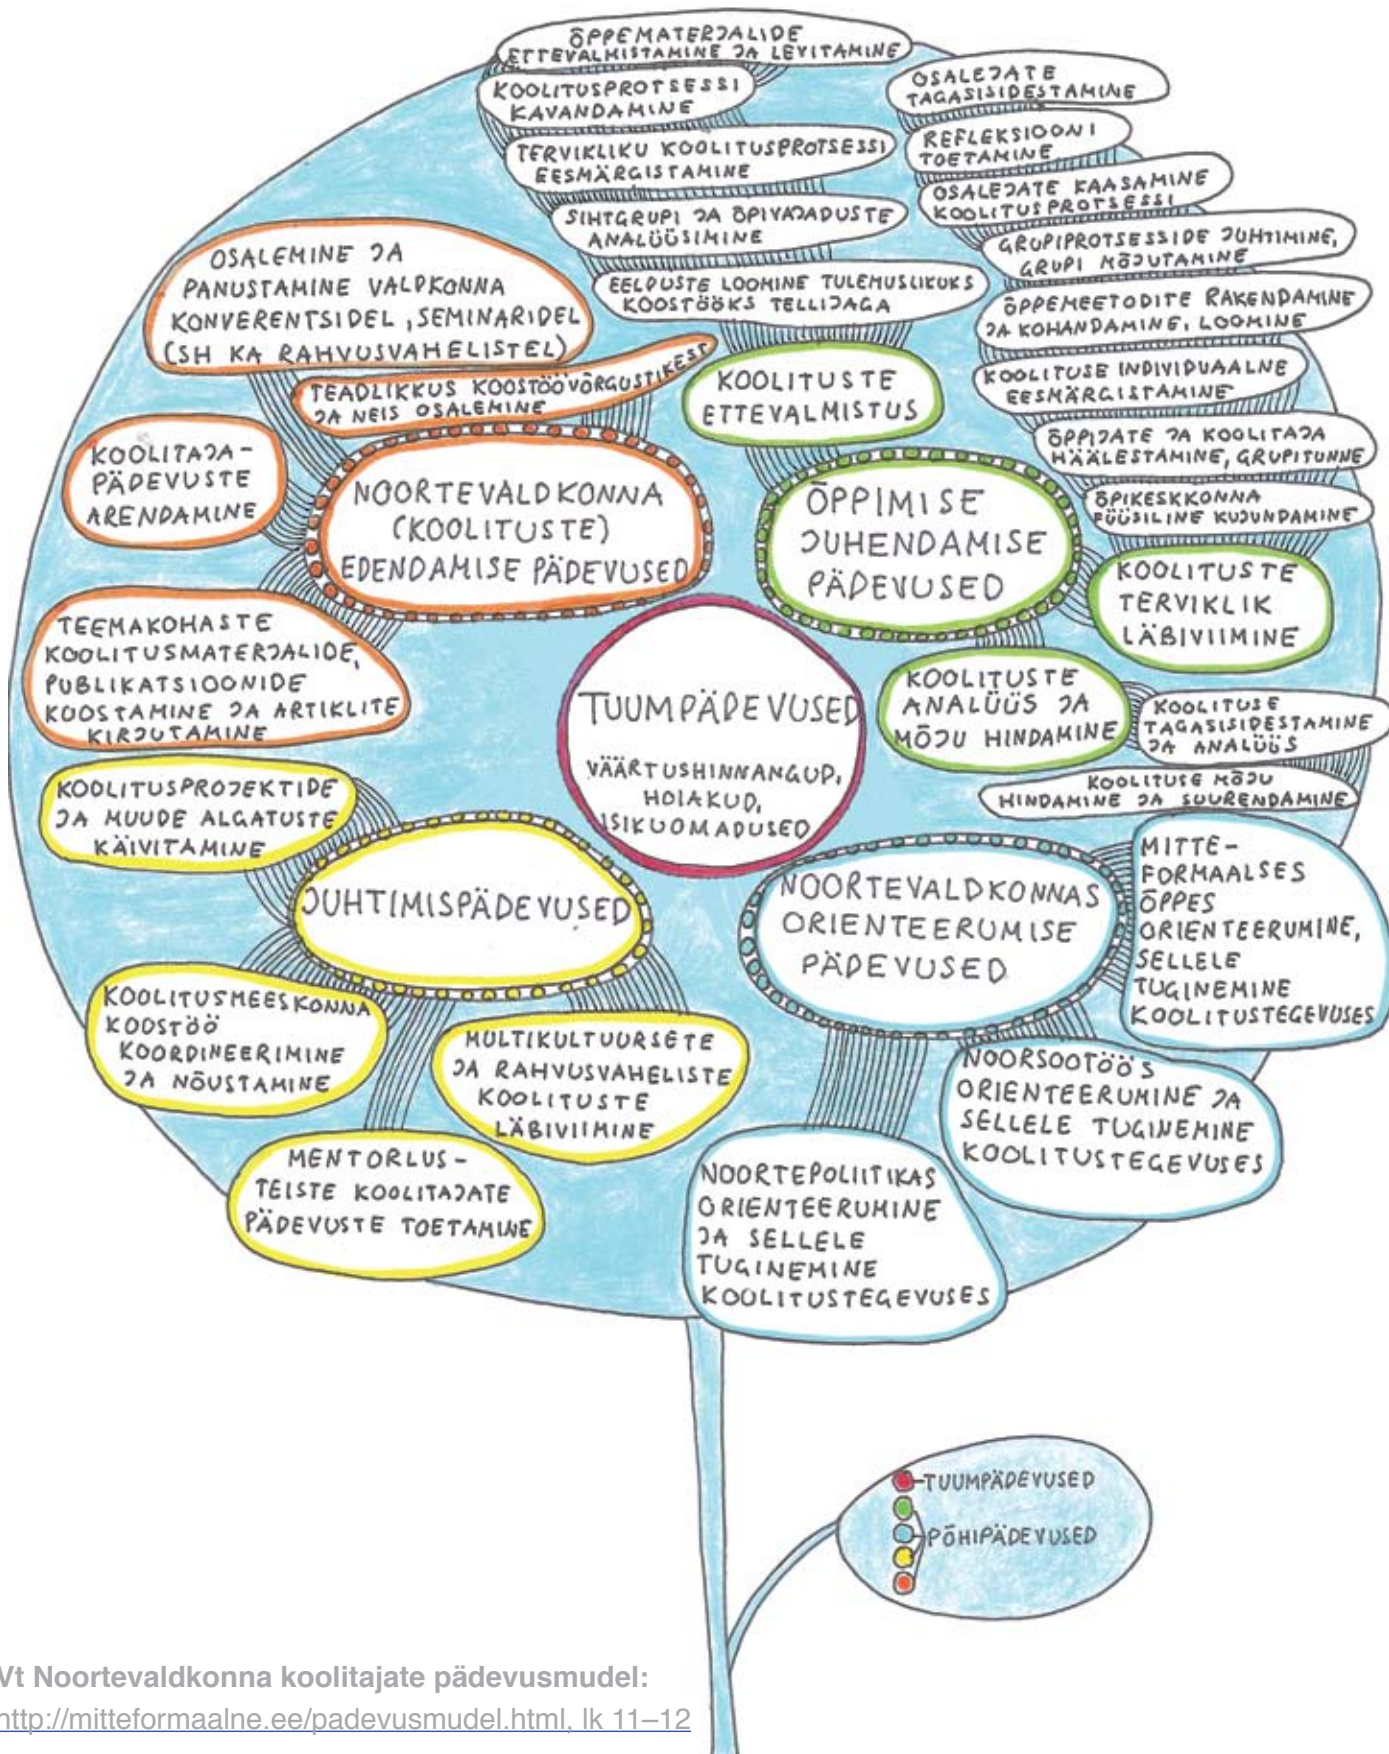 ÕPPEMATERJALIDE
ETTEVALMISTAMINE JA LEVITAMINE
KOOLITUSPROTSESSI
KAVANDAMINE
TERVIKLIKU KOOLITUSPROTSESSI
EESMÄRGISTAMINE
SIHTGRUPI JA ÕPIVAJADUSTE
ANALÜÜSIMINE
EELDUSTE LOOMINE TULEMUSLIKUKS
KOOSTÖÖKS TELLIJAGA
KOOLITUSTE
ETTEVALMISTUS
OSALEJATE
TAGASISIDESTAMINE
REFLEKSIOONI
TOETAMINE
OSALEJATE KAASAMINE
KOOLITUSPROTSESSI
GRUPIPROTSESSIDE JUHTIMINE,
GRUPI MÕJUTAMINE
ÕPPEMEETODITE RAKENDAMINE
JA KOHANDAMINE, LOOMINE
KOOLITUSE INDIVIDUAALNE
EESMÄRGISTAMINE
ÕPPIJATE JA KOOLITAJA
HÄÄLESTAMINE, GRUPITUNNE
ÕPIKESKKONNA
FÜÜSILINE KUJUNDAMINE
KOOLITUSTE
TERVIKLIK
LÄBIVIIMINE
OSALEMINE JA
PANUSTAMINE VALDKONNA
KONVERENTSIDEL, SEMINARIDEL
(SH KA RAHVUSVAHELISTEL)
TEADLIKKUS KOOSTÖÖVÕRGUSTIKEST
JA NEIS OSALEMINE
KOOLITAJA-
PÄDEVUSTE
ARENDAMINE
NOORTEVALDKONNA
(KOOLITUSTE)
EDENDAMISE PÄDEVUSED
ÕPPIMISE
JUHENDAMISE
PÄDEVUSED
TEEMAKOHASTE
KOOLITUSMATERJALIDE,
PUBLIKATSIOONIDE
KOOSTAMINE JA ARTIKLITE
KIRJUTAMINE
TUUMPÄDEVUSED
VÄÄRTUSHINNANGUD,
HOIAKUD,
ISIKUOMADUSED
KOOLITUSTE
ANALÜÜS JA
MÕJU HINDAMINE
KOOLITUSE
TAGASISIDESTAMINE
JA ANALÜÜS
KOOLITUSE MÕJU
HINDAMINE JA SUURENDAMINE
KOOLITUSPROJEKTIDE
JA MUUDE ALGATUSTE
KÄIVITAMINE
JUHTIMISPÄDEVUSED
KOOLITUSMEESKONNA
KOOSTÖÖ
KOORDINEERIMINE
JA NÕUSTAMINE
MULTIKULTUURSETE
JA RAHVUSVAHELISTE
KOOLITUSTE
LÄBIVIIMINE
MENTORLUS-
TEISTE KOOLITAJATE
PÄDEVUSTE TOETAMINE
NOORTEVALDKONNAS
ORIENTEERUMISE
PÄDEVUSED
MITTE-
FORMAALSES
ÕPPES
ORIENTEERUMINE,
SELLELE
TUGINEMINE
KOOLITUSTEGEVUSES
NOORSOOTÖÖS
ORIENTEERUMINE JA
SELLELE TUGINEMINE
KOOLITUSTEGEVUSES
NOORTEPOLIITIKAS
ORIENTEERUMINE
JA SELLELE
TUGINEMINE
KOOLITUSTEGEVUSES
TUUMPÄDEVUSED
PÕHIPÄDEVUSED
Vt Noortevaldkonna koolitajate pädevusmudel:
http://mitteformaalne.ee/padevusmudel.html, lk 11–12